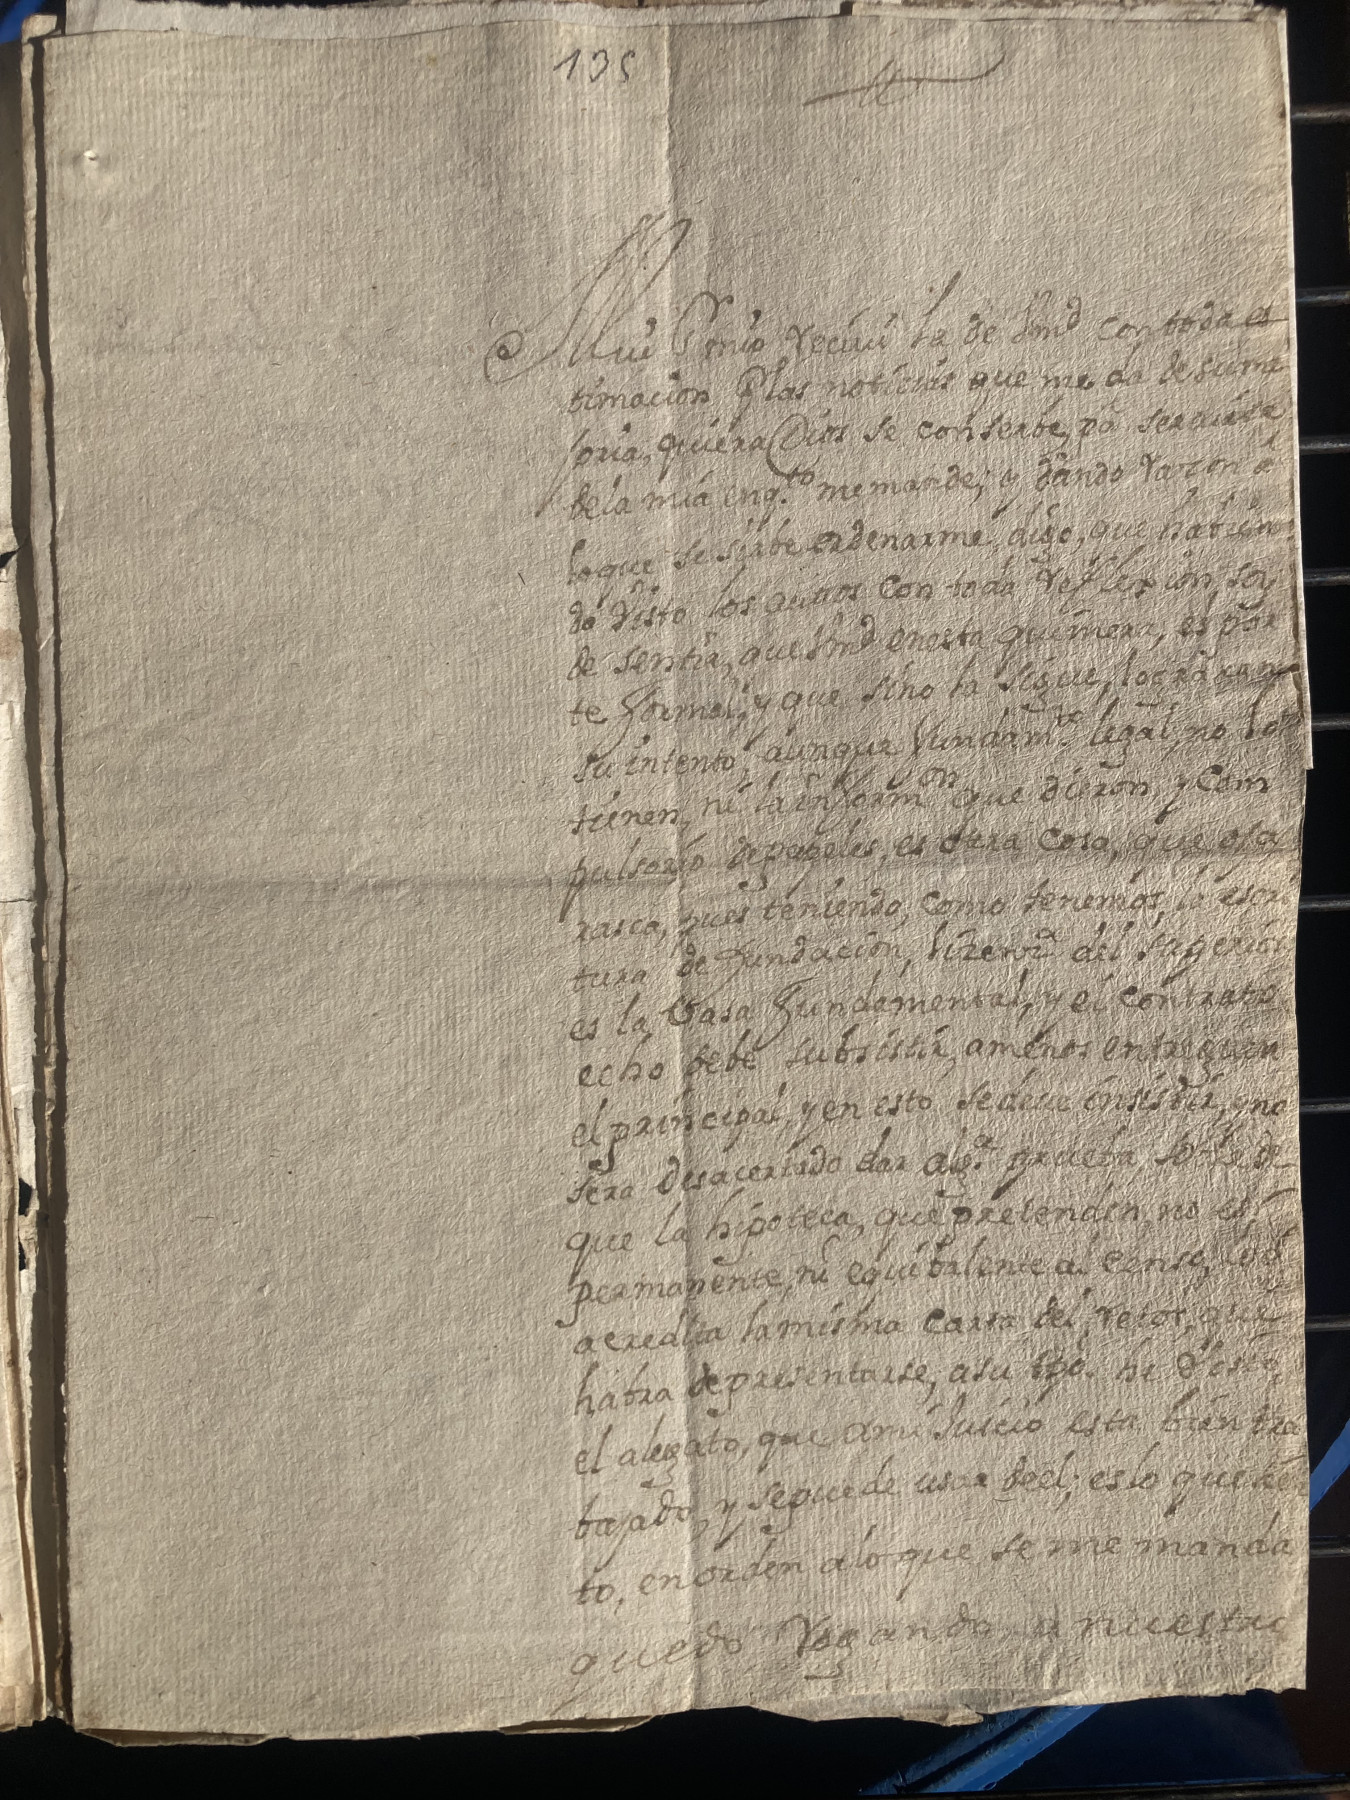 135
Mui Sr mio recivi la de Vmd con toda es
timacion, por las noticias que me da de su me
joria, quiera Dios se conserbe, pa servirse
de la mia en qto me mande; y dando razon a
lo que se sirbe ordenarme, digo, que habien
do visto los autos con toda reflexion, soy
de sentir, que Vmd en esta quimera, es par
te formal, y que sino la sigue, lograran
su intento, aunque fundamto legal, no lo
tienen, ni la informon que dieron, y com
pulsorio de papeles, es otra cosa, que oja
rasca, pues teniendo, como tenemos, la escri
tura de fundacion, del superior
es la vasa fundamental, y el contrato
echo debe subsistir, amenos entreguen
el principal, y en esto se deve insistir, y no
sera desacertado dar alga prueba sobre
que la hipoteca, que pretenden, no es
permanente, ni equibalente al censo,
acredita la misma carta del retor, que
habra de presentarse, a su tpo. he visto
el alegato, que a mi juicio esta bien tra
bajado, y se puede usar de el; es lo que
to, en orden a lo que se me manda
quedo rogando a nuestro